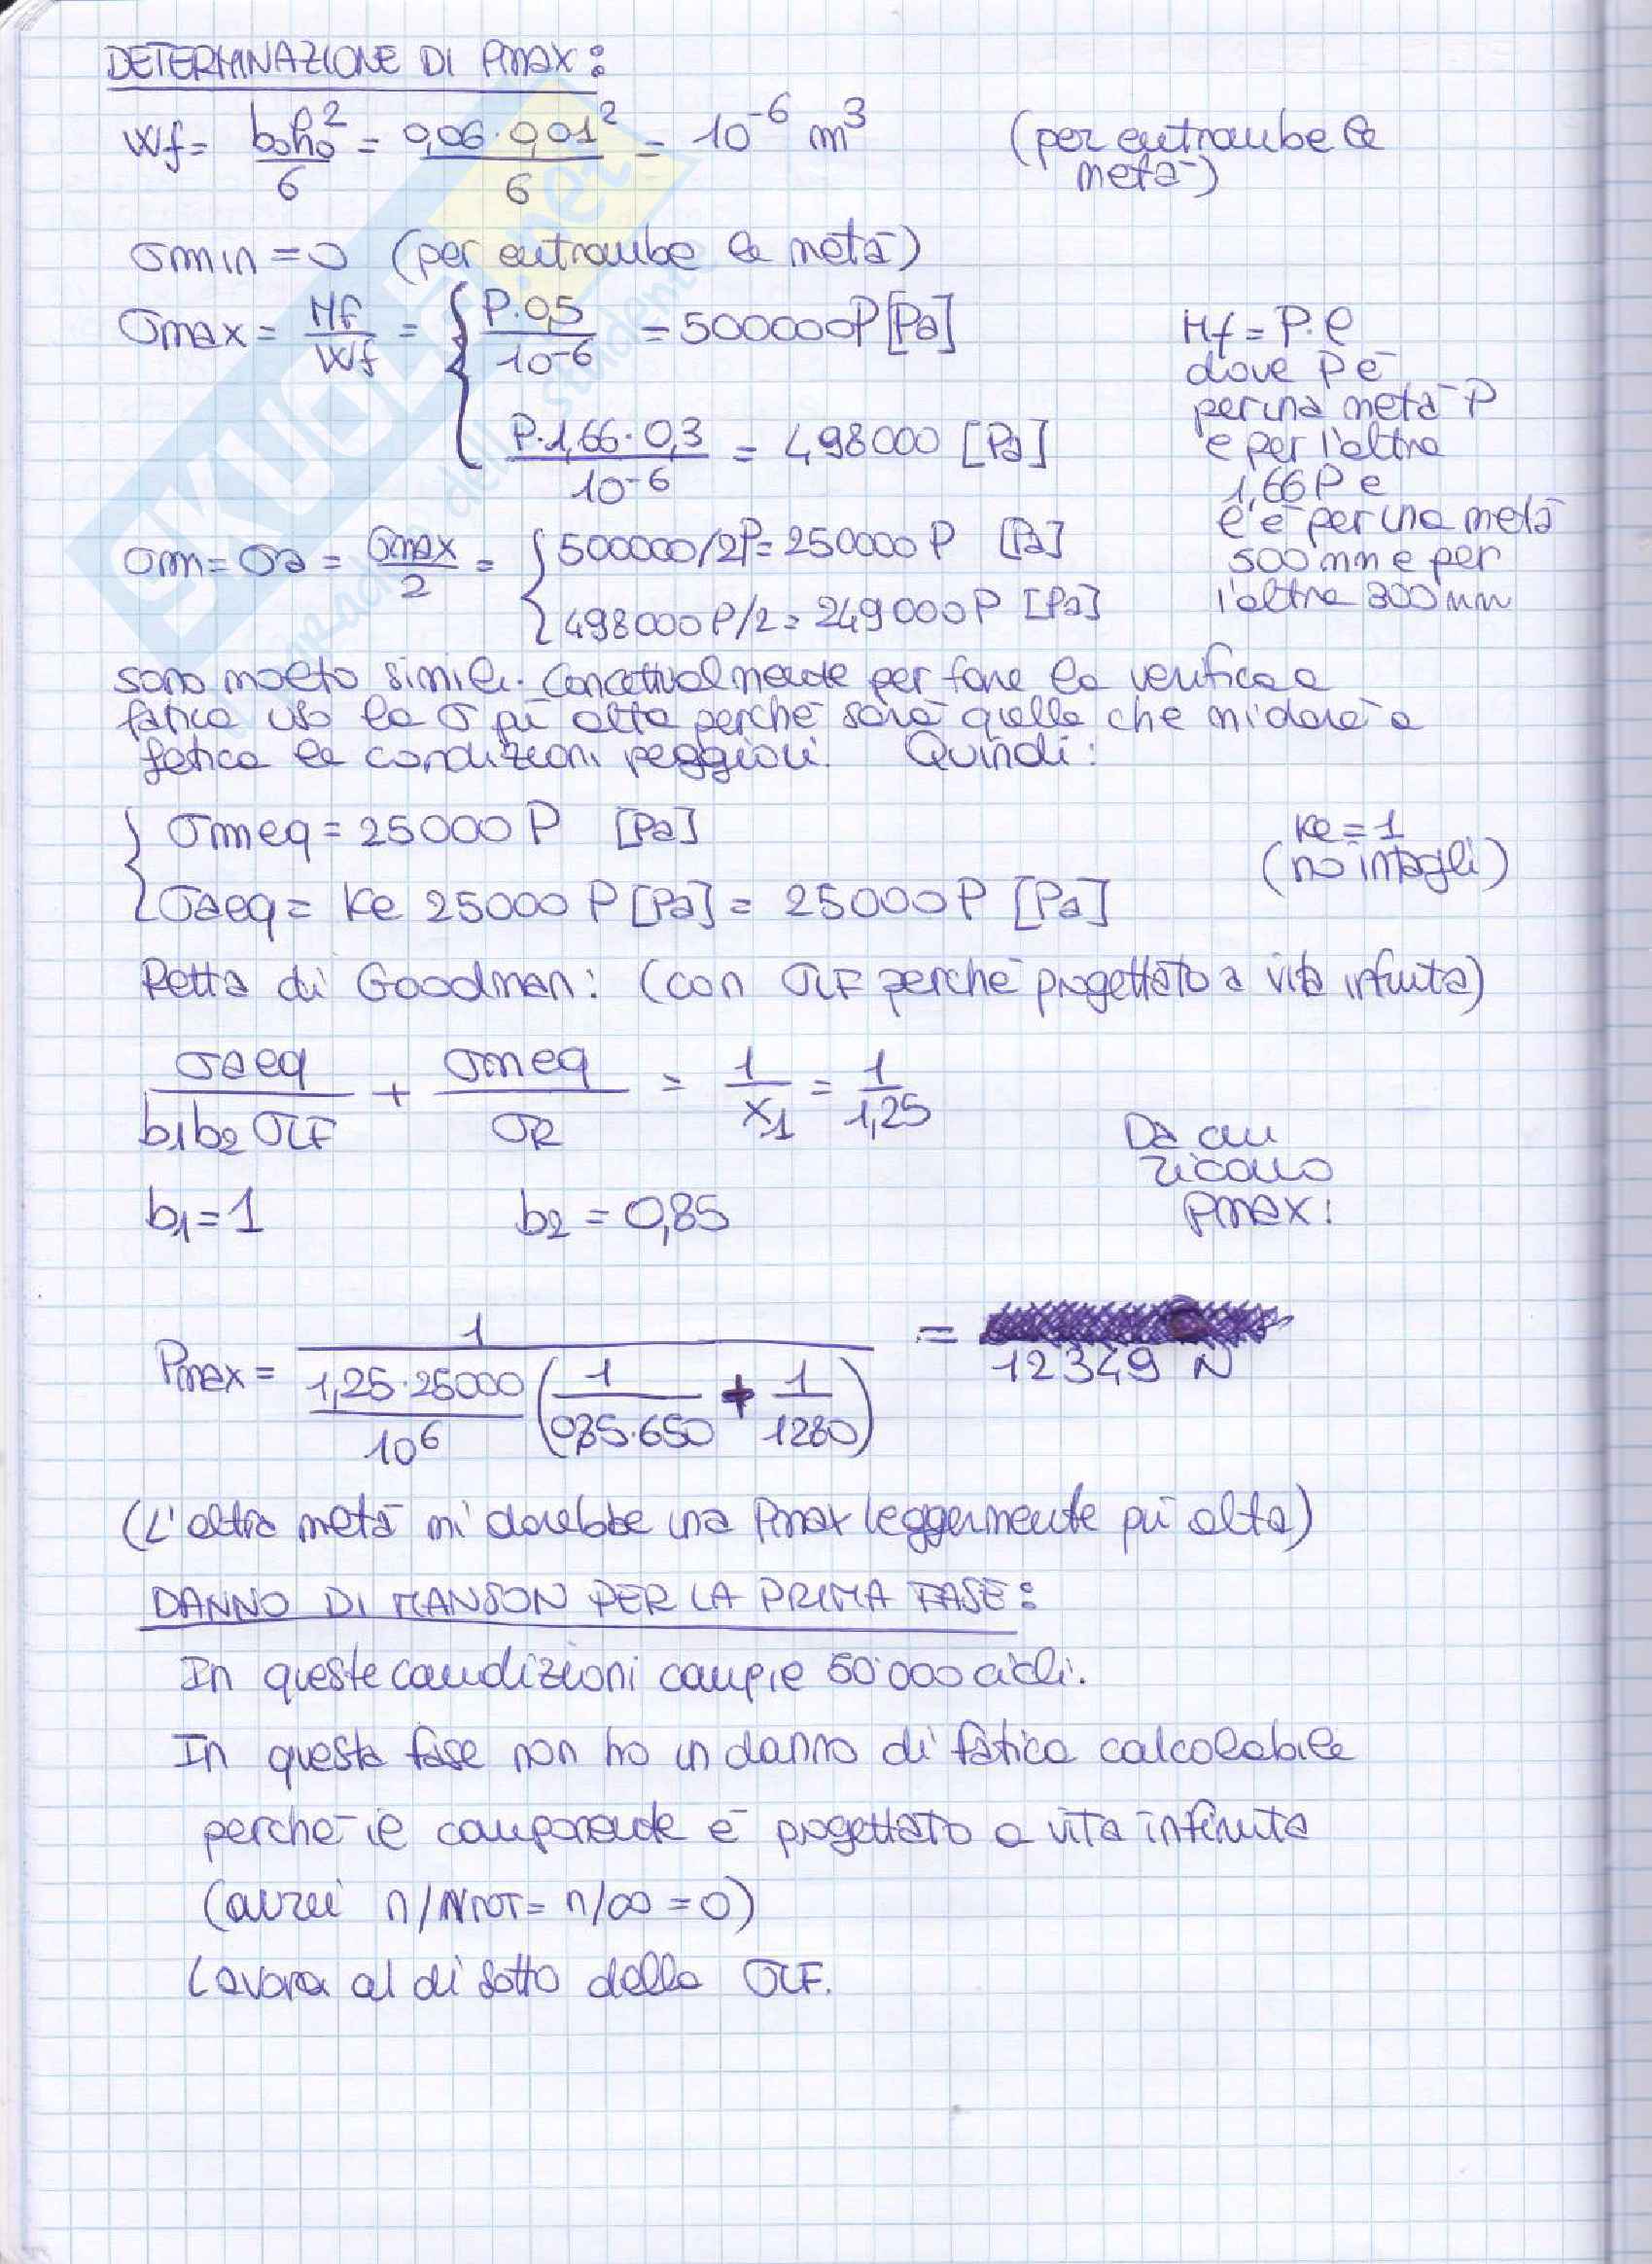 DETERMINAZIONE DI Pmax:
Wf = b₀h₀²/6 = 0,06·0,01²/6 = 10⁻⁶ m³ (per entrambe le metà)
σmin = 0 (per entrambe le metà)
σmax = Mf/Wf = { P·0,5/10⁻⁶ = 500000P [Pa]
P·1,66·0,3/10⁻⁶ = 498000 [Pa]
Mf = P·l
dove P è
per una metà P
e per l'altra
1,66P e
l è per una metà
500mm e per
l'altra 300mm
σm = σa = σmax/2 = { 500000/2P = 250000P [Pa]
498000P/2 = 249000P [Pa]
sono molto simili. Concettualmente per fare la verifica a
fatica uso la σ più alta perché sarà quella che mi darà a
fatica le condizioni peggiori. Quindi:
{ σmeq = 25000P [Pa]
σaeq = Ke 25000P [Pa] = 25000P [Pa]
Ke = 1
(no intagli)
Retta di Goodman: (con σLF perché progettato a vita infinita)
σaeq/b₁b₂σLF + σmeq/σR = 1/X₁ = 1/1,25
Da cui
ricavo
Pmax:
b₁ = 1 b₂ = 0,85
Pmax = 1/(1,25·25000/10⁶ (1/0,85·650 + 1/1280)) =
12349 N
(L'altra metà mi darebbe una Pmax leggermente più alta)
DANNO DI MANSON PER LA PRIMA FASE:
In queste condizioni compie 50'000 cicli.
In questa fase non ho un danno di fatica calcolabile
perché il componente è progettato a vita infinita
(avrei n/NTOT = n/∞ = 0)
Lavora al di sotto della σLF.